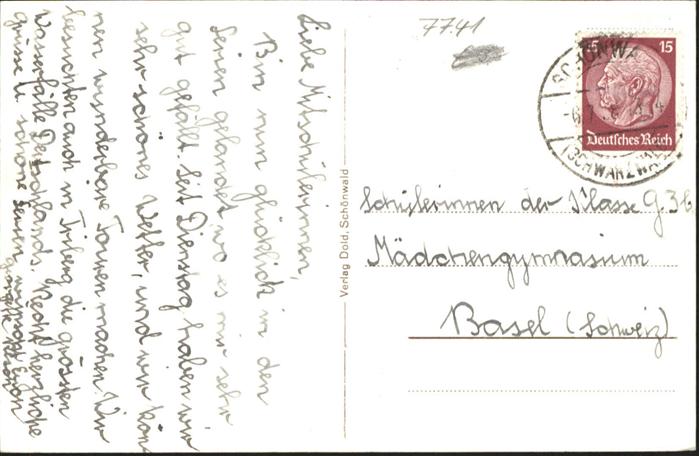 Liebe Mitschülerinnen,
Bin nun glücklich in den
Ferien gelandet wo es mir sehr
gut gefällt. Seit Dienstag haben wir
sehr schönes Wetter, und wir kön
nen wunderbare Touren machen. Wir
besuchten auch in Triberg die grössten
Wasserfälle Deutschlands. Recht herzliche
grüsse u. schöne Ferien wünscht Euch
7741
SCHONWA
(SCHWARZWA
15 15
Deutsches Reich
Verlag Dold, Schönwald
Schülerinnen der Klasse G.3b
Mädchengymnasium
Basel (Schweiz)